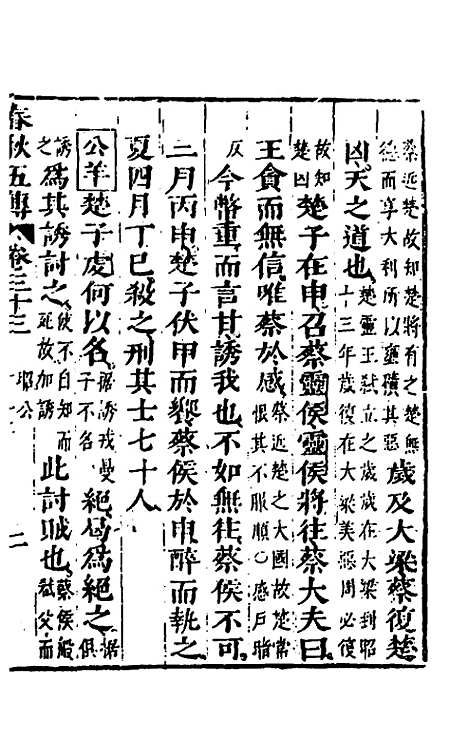 蔡近楚故知楚將有之楚無
德而享大利所以壅積其惡
歲及大梁蔡復楚
凶天之道也
楚靈王弒立之歲歲在大梁到昭
十三年歲復在大梁美惡周必復
故知
楚凶
楚子在申召蔡靈侯靈侯將往蔡大夫曰
王貪而無信唯蔡於感
蔡近楚之大國故楚常
恨其不服順○感戶暗
反
今幣重而言甘誘我也不如無往蔡侯不可
三月丙申楚子伏甲而饗蔡侯於申醉而執之
夏四月丁巳殺之刑其士七十人
公羊
楚子虔何以名
據誘戎曼
子不名
絕曷爲絕之
據
俱
誘
之
爲其誘討之
使不自知而
死故加誘
此討賊也
蔡侯般
弒父而
春秋五傳
卷之三十三
昭公
十一
二